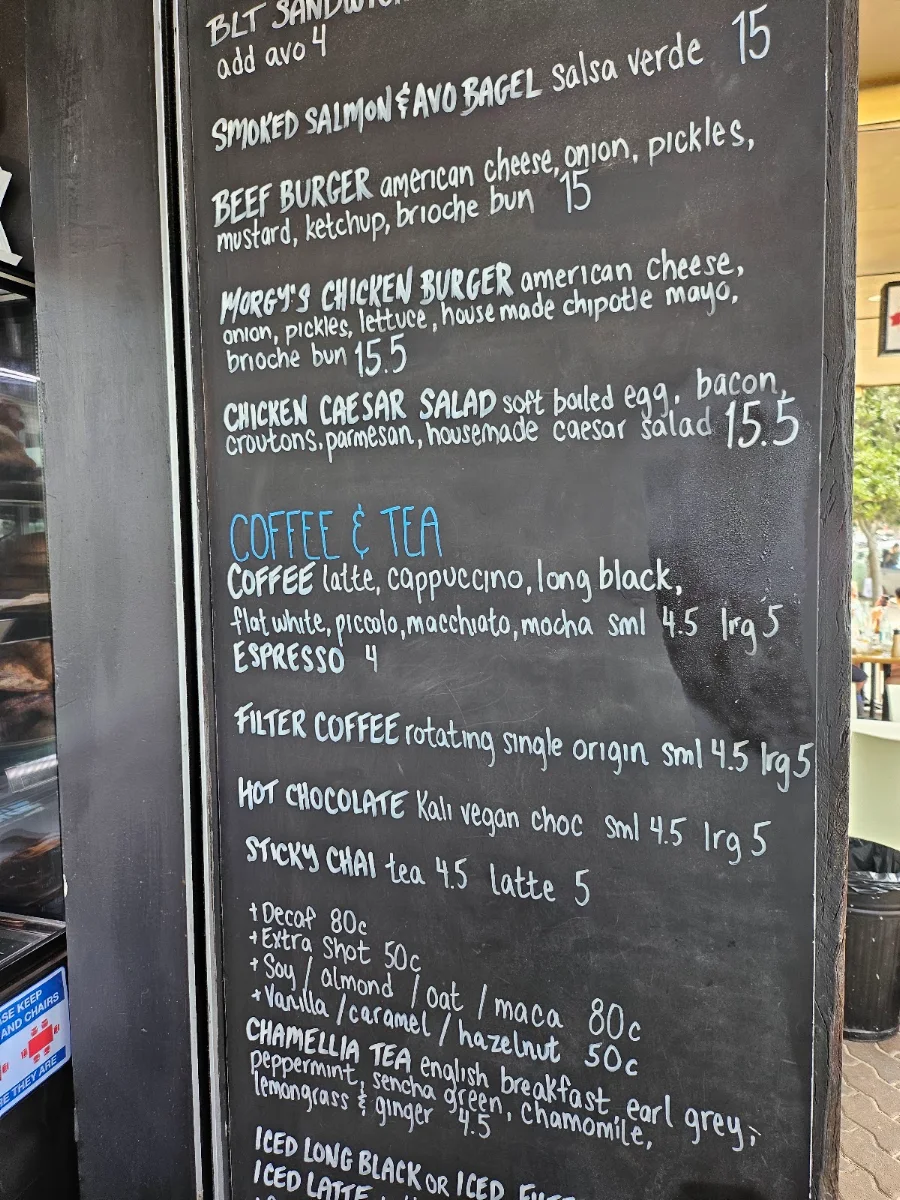 BLT
add avo 4
SMOKED SALMON & AVO BAGEL salsa verde 15
BEEF BURGER american cheese, onion, pickles,
mustard, ketchup, brioche bun 15
MORGY'S CHICKEN BURGER american cheese,
onion, pickles, lettuce, house made chipotle mayo,
brioche bun 15.5
CHICKEN CAESAR SALAD soft boiled egg, bacon,
croutons, parmesan, housemade caesar salad 15.5
COFFEE & TEA
COFFEE latte, cappuccino, long black,
flat white, piccolo, macchiato, mocha sml 4.5 lrg 5
ESPRESSO 4
FILTER COFFEE rotating single origin sml 4.5 lrg 5
HOT CHOCOLATE Kali vegan choc sml 4.5 lrg 5
STICKY CHAI tea 4.5 latte 5
+Decaf 80c
+Extra shot 50c
+Soy / almond / oat / maca 80c
+Vanilla / caramel / hazelnut 50c
CHAMELLIA TEA english breakfast, earl grey,
peppermint, sencha green, chamomile,
lemongrass & ginger 4.5
ICED LONG BLACK OR ICED
ICED LATTE
SE KEEP
AND CHAIRS
E THEY ARE